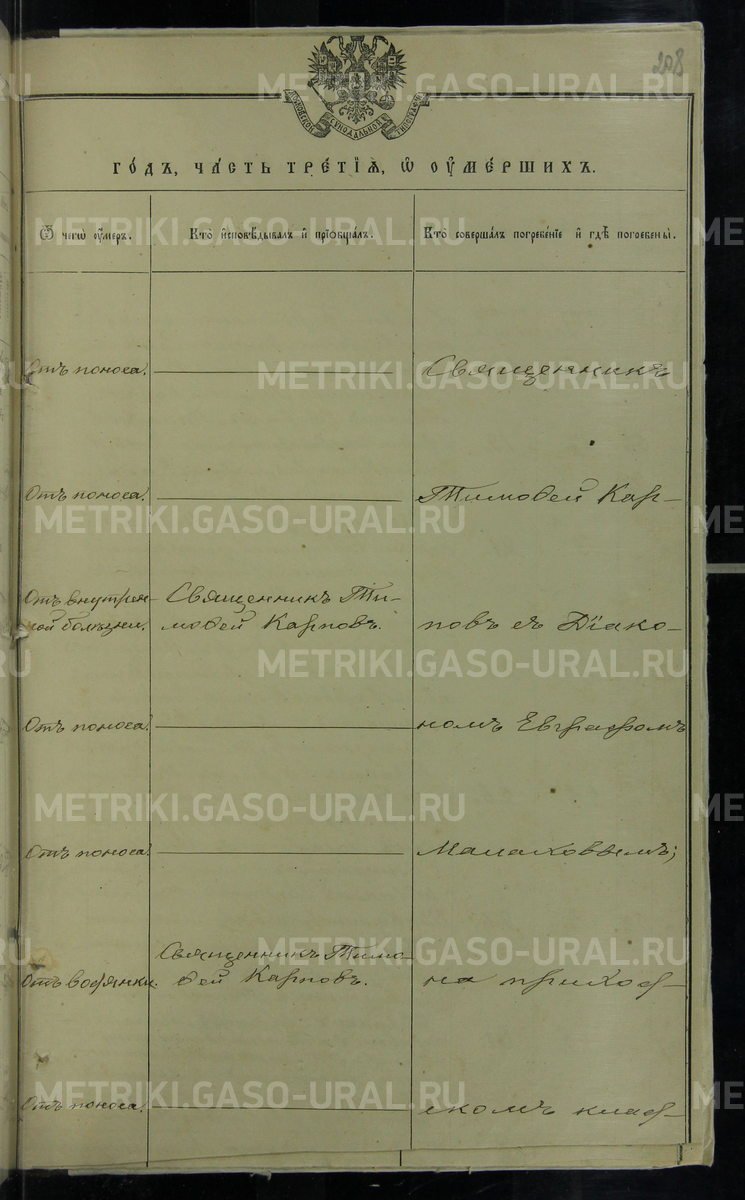 208
МОСКОВСКОЙ СѴНОДАЛЬНОЙ ТИПОГРАФІИ
ГО́ДЪ, ЧА́СТЬ ТРЕ́ТІѦ, Ѡ҆ ОУ҆МЕ́РШИХЪ.
Ѿ чегѡ̀ оу҆́меръ.
Кто̀ и҆сповѣ́дывалъ и҆ прїѡбща́лъ.
Кто̀ соверша́лъ погребе́нїе и҆ гдѣ̀ погребены̀.
Отъ поноса.
Священникъ
Отъ поноса.
Тимовей Кар-
Отъ внутрен-
ней болѣзни.
Священникъ Ти-
мовей Карповъ.
повъ съ Дїако-
Отъ поноса.
номъ Евграфомъ
Отъ поноса.
Малаховымъ;
Отъ водянки.
Священникъ Тимо-
вей Карповъ.
на приход-
Отъ поноса.
скомъ клад-
METRIKI.GASO-URAL.RU